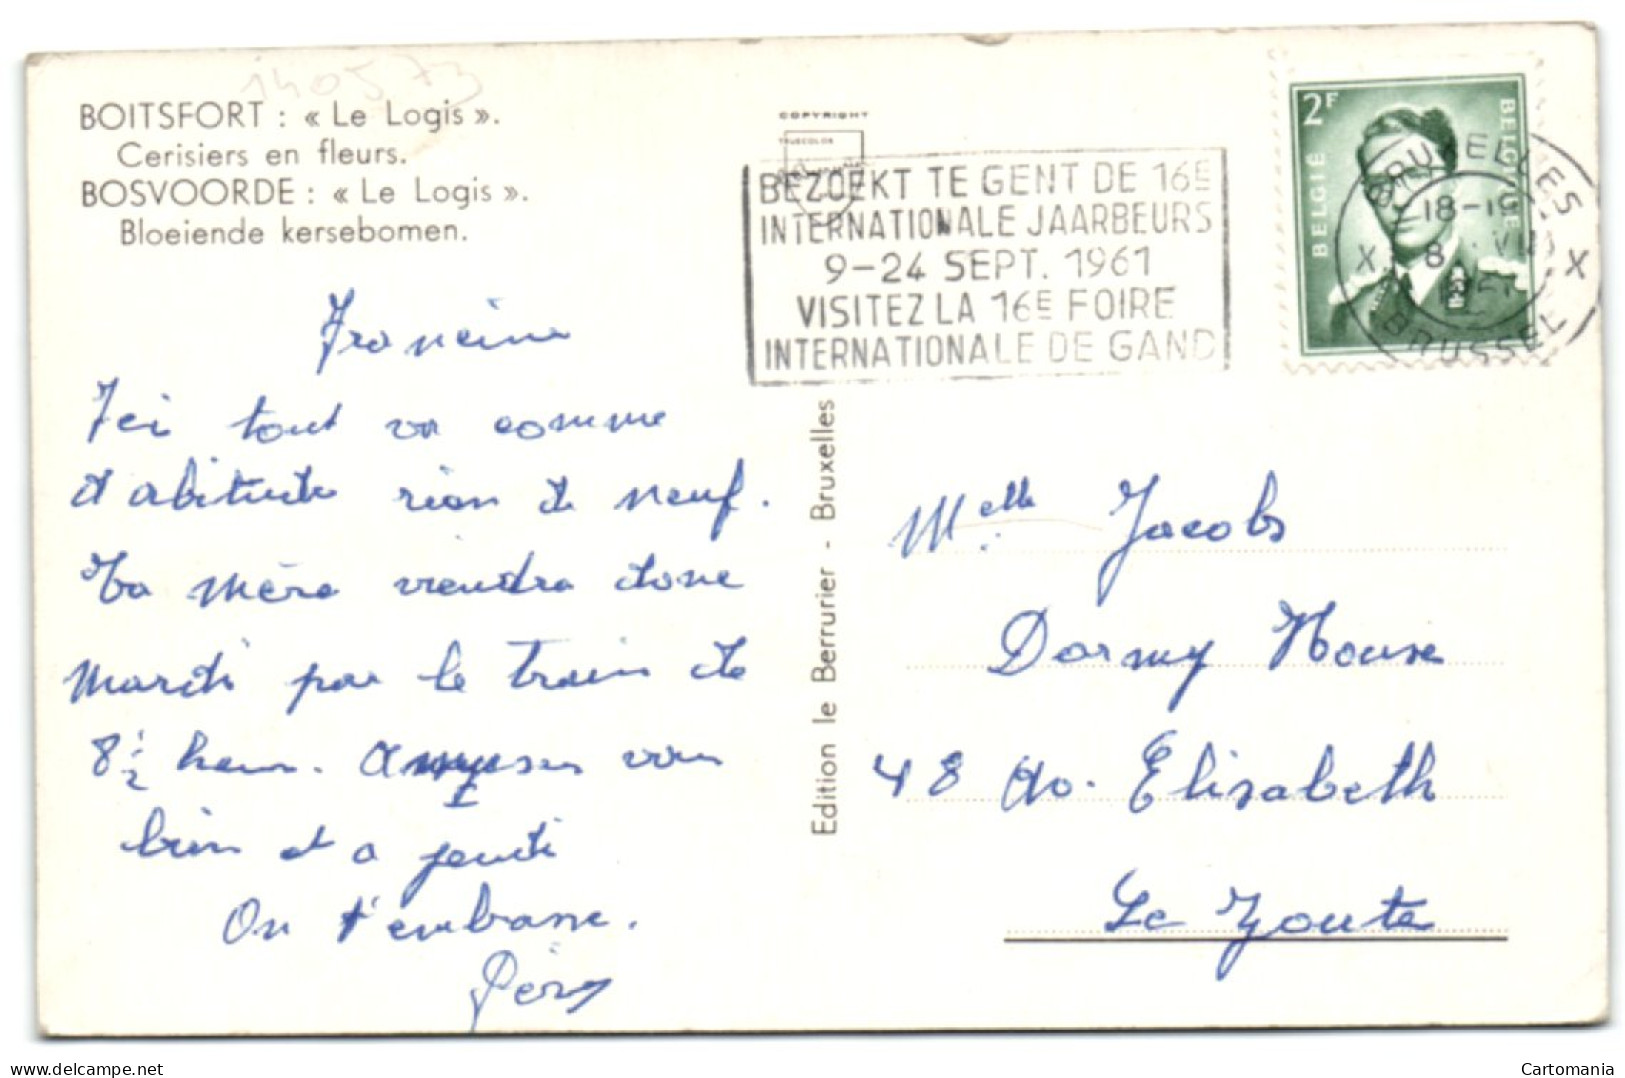 140573
BOITSFORT : « Le Logis ».
Cerisiers en fleurs.
BOSVOORDE : « Le Logis ».
Bloeiende kersebomen.
COPYRIGHT
TRUECOLOR
BEZOEKT TE GENT DE 16E
INTERNATIONALE JAARBEURS
9-24 SEPT. 1961
VISITEZ LA 16E FOIRE
INTERNATIONALE DE GAND
2F
BELGIË
BELGIQUE
BRUXELLES
X X
BRUSSEL
Francine
Ici tout va comme
d'abitude rien de neuf.
Ta mère viendra donc
mardi par le train de
8 1/2 heur. Amuses vous
bien et a jeudi
On t'embrasse.
Edition le Berrurier - Bruxelles
Melle Jacobs
Dormy House
48 Av. Elisabeth
Le Zoute
www.delcampe.net
Cartomania